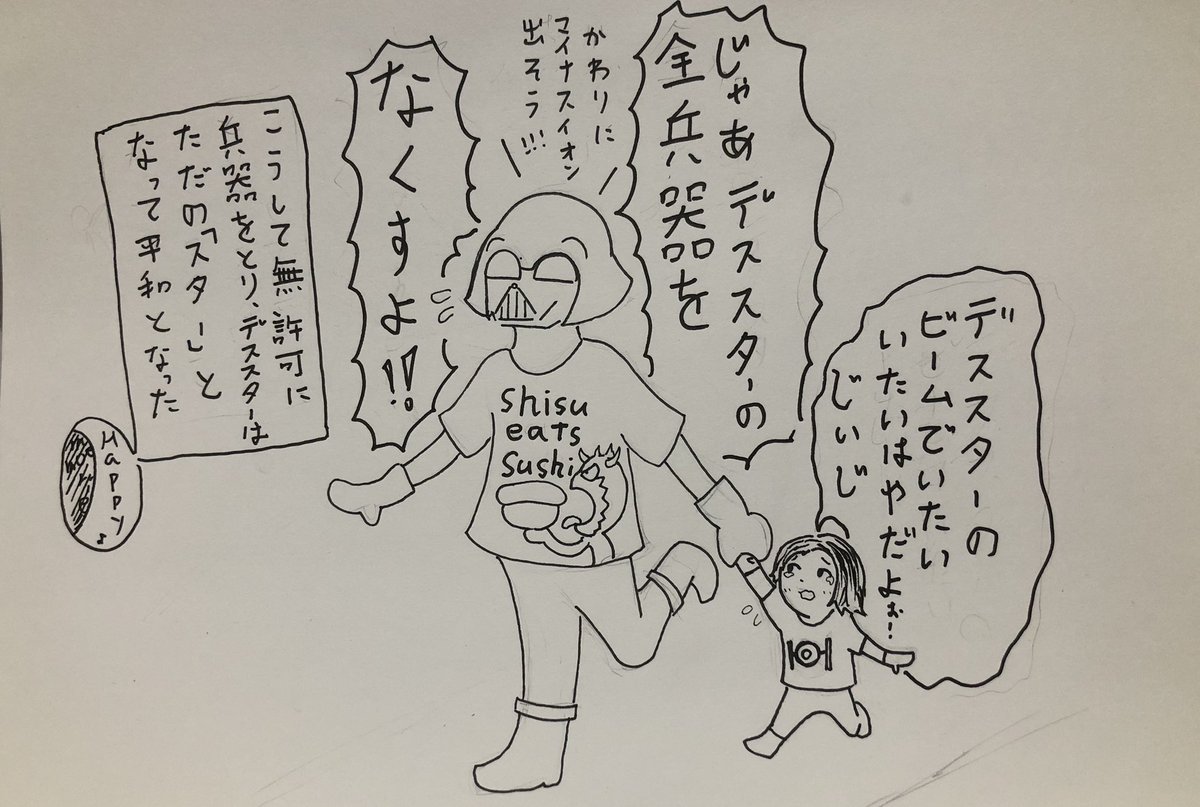 デススターの
ビームでいたい
いたいはやだよぉ…!
じぃじ
じゃあデススターの
全兵器を
なくすよ!!
かわりに
マイナスイオン
出そう!!!
Shisu
eats
Sushi
こうして無許可に
兵器をとり、デススターは
ただの「スター」と
なって平和となった
Happy♪